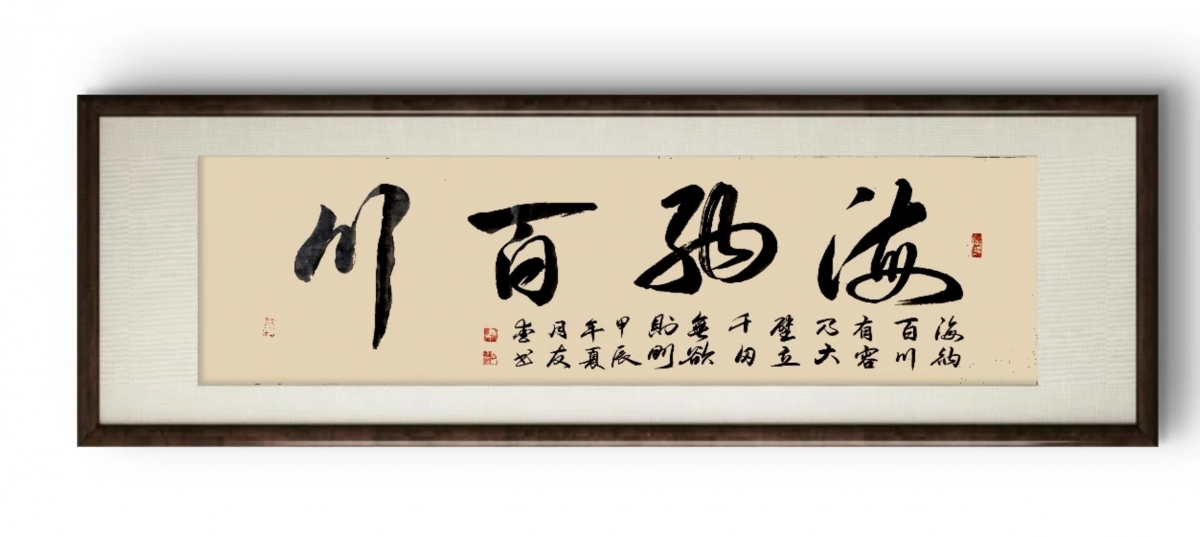 海納百川
海納
百川
有容
乃大
壁立
千仞
無欲
則剛
甲辰
年夏
月友
书